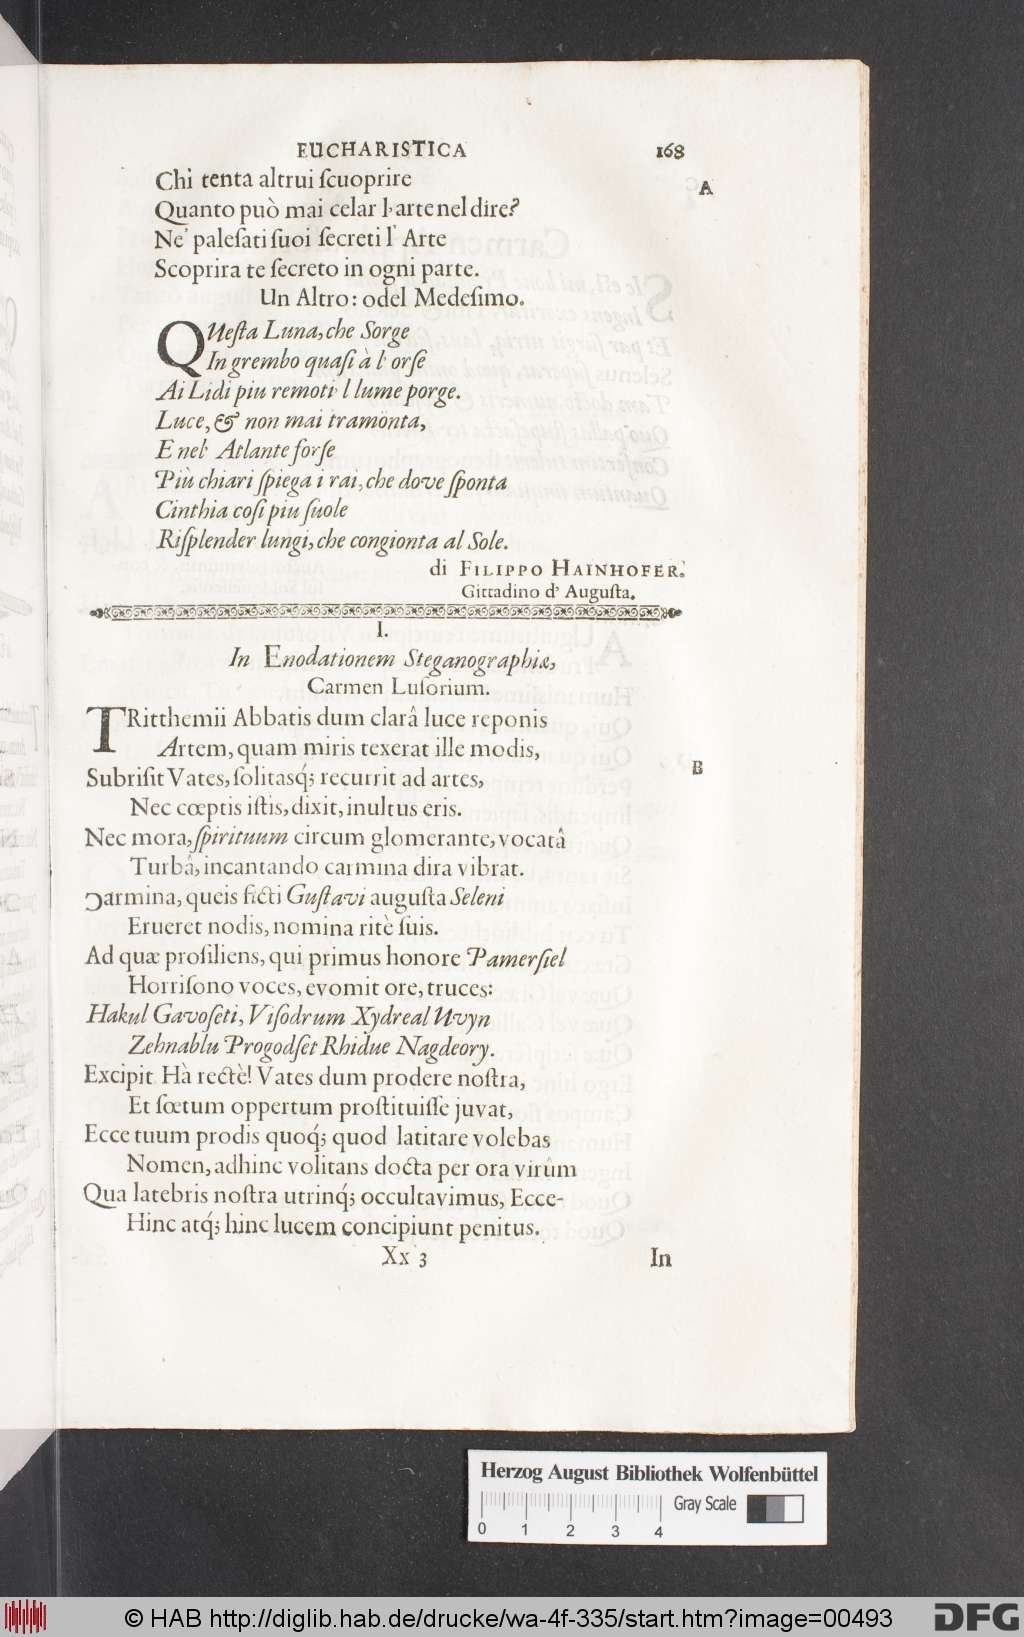 EUCHARISTICA 168
A
Chi tenta altrui ſcuoprire
Quanto può mai celar l'arte nel dire?
Ne' paleſati ſuoi ſecreti l' Arte
Scoprira te ſecreto in ogni parte.
Un Altro: odel Medeſimo.
QUeſta Luna, che Sorge
In grembo quaſi à l' orſe
Ai Lidi piu remoti l lume porge.
Luce, & non mai tramonta,
E nel' Atlante forſe
Più chiari ſpiega i rai, che dove ſponta
Cinthia coſi piu ſuole
Riſplender lungi, che congionta al Sole.
di FILIPPO HAINHOFER.
Gittadino d' Auguſta.
I.
In Enodationem Steganographiæ,
Carmen Luſorium.
TRitthemii Abbatis dum clarâ luce reponis
Artem, quam miris texerat ille modis,
B
Subriſit Vates, ſolitasq́; recurrit ad artes,
Nec cœptis iſtis, dixit, inultus eris.
Nec mora, ſpirituum circum glomerante, vocatâ
Turbâ, incantando carmina dira vibrat.
Ɔarmina, queis ficti Guſtavi auguſta Seleni
Erueret nodis, nomina ritè ſuis.
Ad quæ proſiliens, qui primus honore Pamerſiel
Horriſono voces, evomit ore, truces:
Hakul Gavoſeti, Viſodrum Xydreal Uvyn
Zehnablu Progodſet Rhidue Nagdeory.
Excipit Hà rectè! Vates dum prodere noſtra,
Et fœtum oppertum proſtituiſſe juvat,
Ecce tuum prodis quoq́; quod latitare volebas
Nomen, adhinc volitans docta per ora virûm
Qua latebris noſtra utrinq́; occultavimus, Ecce-
Hinc atq́; hinc lucem concipiunt penitus.
Xx 3 In
Herzog August Bibliothek Wolfenbüttel
Gray Scale
0 1 2 3 4
© HAB http://diglib.hab.de/drucke/wa-4f-335/start.htm?image=00493 DFG